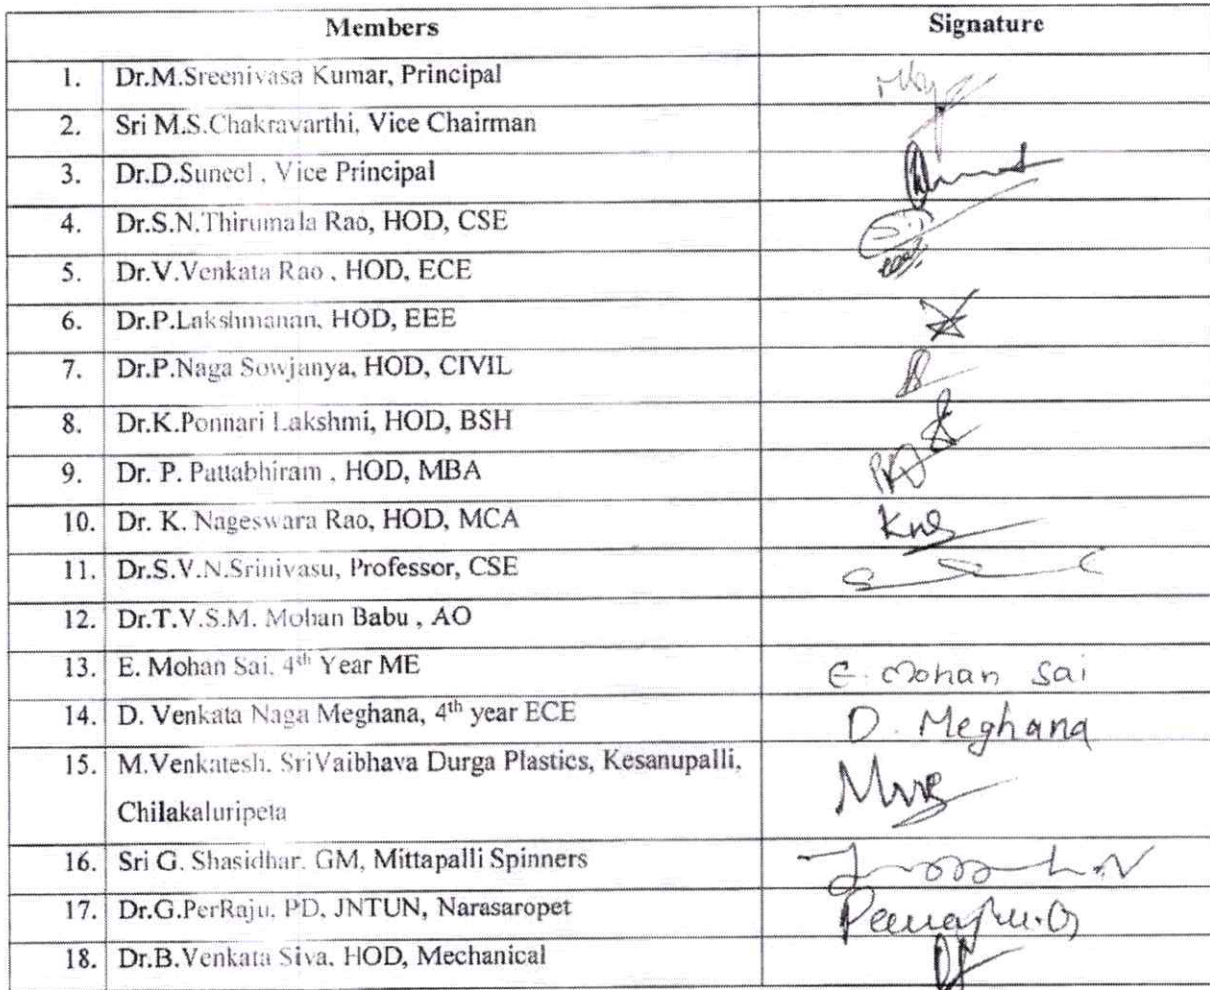 Members Signature
1. Dr.M.Sreenivasa Kumar, Principal
2. Sri M.S.Chakravarthi, Vice Chairman
3. Dr.D.Suneel , Vice Principal
4. Dr.S.N.Thirumala Rao, HOD, CSE
5. Dr.V.Venkata Rao , HOD, ECE
6. Dr.P.Lakshmanan, HOD, EEE
7. Dr.P.Naga Sowjanya, HOD, CIVIL
8. Dr.K.Ponnari Lakshmi, HOD, BSH
9. Dr. P. Pattabhiram , HOD, MBA
10. Dr. K. Nageswara Rao, HOD, MCA
11. Dr.S.V.N.Srinivasu, Professor, CSE
12. Dr.T.V.S.M. Mohan Babu , AO
13. E. Mohan Sai. 4th Year ME E. Mohan Sai
14. D. Venkata Naga Meghana, 4th year ECE D. Meghana
15. M.Venkatesh. SriVaibhava Durga Plastics, Kesanupalli,
Chilakaluripeta
16. Sri G. Shasidhar. GM, Mittapalli Spinners
17. Dr.G.PerRaju. PD. JNTUN, Narasaropet
18. Dr.B.Venkata Siva. HOD, Mechanical